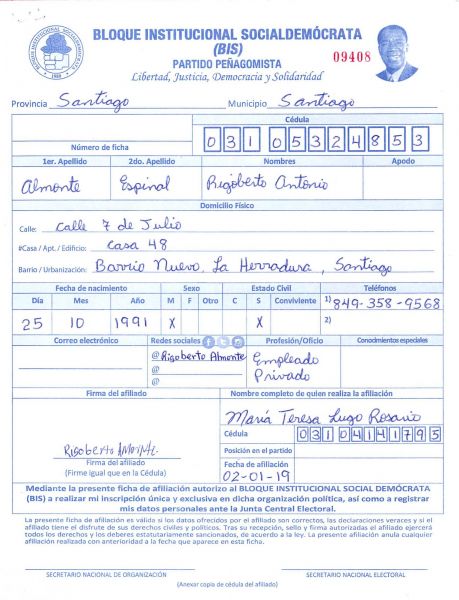 BLOQUE INSTITUCIONAL SOCIALDEMÓCRATA
(BIS)
PARTIDO PEÑAGOMISTA
Libertad, Justicia, Democracia y Solidaridad
09408
BLOQUE INSTITUCIONAL SOCIALDEMÓCRATA
Provincia Santiago Municipio Santiago
Cédula
Número de ficha 031 0532485 3
1er. Apellido 2do. Apellido Nombres Apodo
Almonte Espinal Rigoberto Antonio
Domicilio Físico
Calle: Calle 7 de Julio
#Casa / Apt. / Edificio: Casa 48
Barrio / Urbanización: Barrio Nuevo, La Herradura, Santiago
Fecha de nacimiento Sexo Estado Civil Teléfonos
Día Mes Año M F Otro C S Conviviente 1) 849-358-9568
25 10 1991 X X 2)
Correo electrónico Redes sociales Profesión/Oficio Conocimientos especiales
@Rigoberto Almonte Empleado
@ Privado
@
Firma del afiliado Nombre completo de quien realiza la afiliación
María Teresa Lugo Rosario
Cédula 03104141795
Rigoberto Almonte
Posición en el partido
Firma del afiliado
(Firme igual que en la Cédula)
Fecha de afiliación
02-01-19
Mediante la presente ficha de afiliación autorizo al BLOQUE INSTITUCIONAL SOCIAL DEMÓCRATA
(BIS) a realizar mi inscripción única y exclusiva en dicha organización política, así como a registrar
mis datos personales ante la Junta Central Electoral.
La presente ficha de afiliación es válida si los datos ofrecidos por el afiliado son correctos, las declaraciones veraces y si el
afiliado tiene el disfrute de sus derechos civiles y políticos. Tras su recepción, sello y firma autorizadas el afiliado ejercerá
todos los derechos y los deberes estatutariamente sancionados, de acuerdo a la ley. La presente afiliación anula cualquier
afiliación realizada con anterioridad a la fecha que aparece en esta ficha.
SECRETARIO NACIONAL DE ORGANIZACIÓN SECRETARIO NACIONAL ELECTORAL
(Anexar copia de cédula del afiliado)